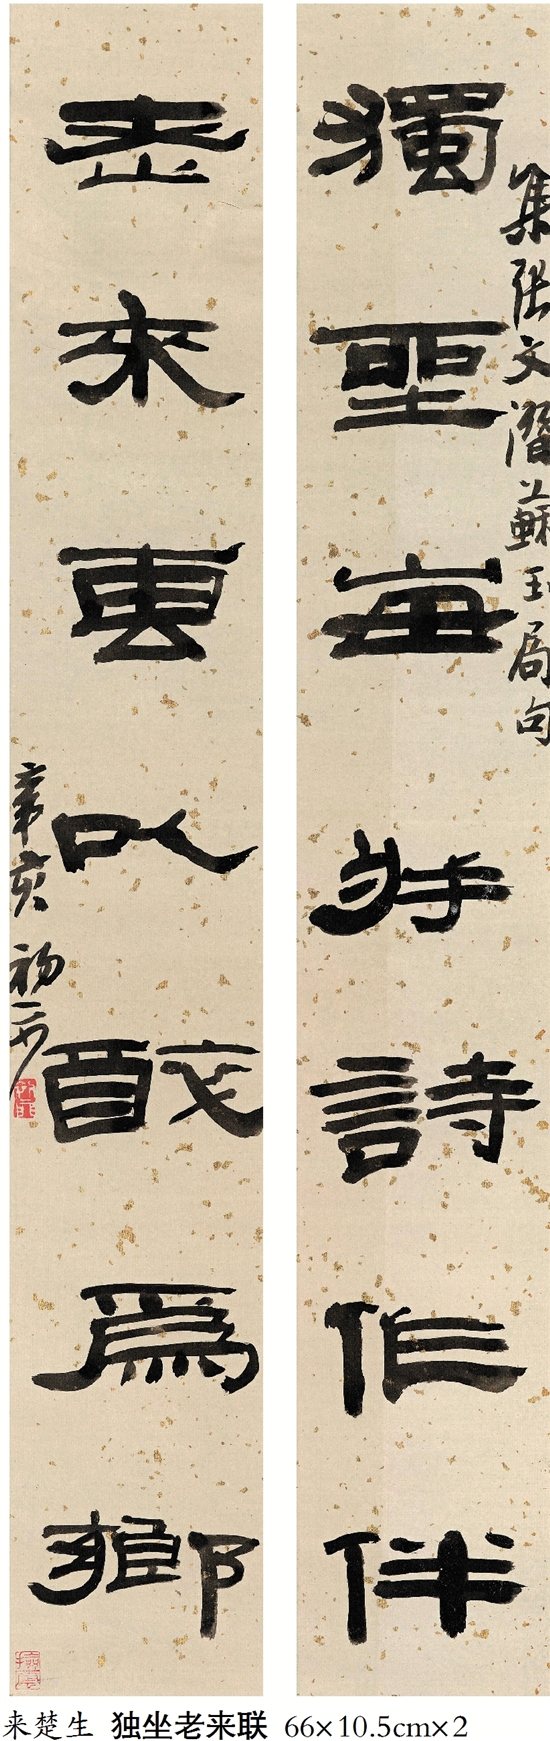 集張文潛蘇玉局句
獨坐每將詩作伴
老來專以醉為鄉
辛亥 初升
来楚生 独坐老来联 66×10.5cm×2